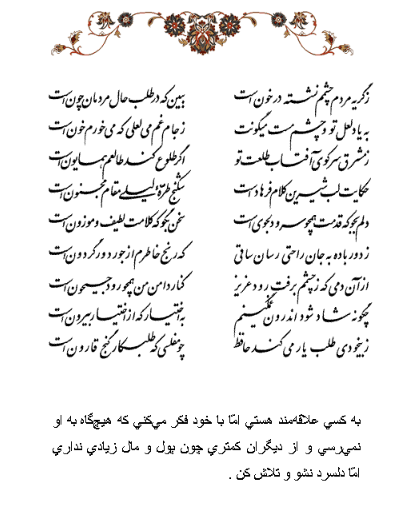 ز گریه مردم چشمم نشسته در خون است ببین که در طلبت حال مردمان چون است
به یاد لعل تو و چشم مست میگونت ز جام غم می لعلی که می‌خورم خون است
ز مشرق سر کوی آفتاب طلعت تو اگر طلوع کند طالعم همایون است
حکایت لب شیرین کلام فرهاد است شکنج طره لیلی مقام مجنون است
دلم بجو که قدت همچو سرو دلجوی است سخن بگو که کلامت لطیف و موزون است
ز دور باده به جان راحتی رسان ساقی که رنج خاطرم از جور دور گردون است
از آن دمی که ز چشمم برفت رود عزیز کنار دامن من همچو رود جیحون است
چگونه شاد شود اندرون غمگینم به اختیار که از اختیار بیرون است
ز بیخودی طلب یار می‌کند حافظ چو مفلسی که طلبکار گنج قارون است
به كسي علاقه‌مند هستي امّا با خود فكر مي‌كني كه هيچ‌گاه به او
نمي‌رسي و از ديگران كمتري چون پول و مال زيادي نداري
امّا دلسرد نشو و تلاش كن .